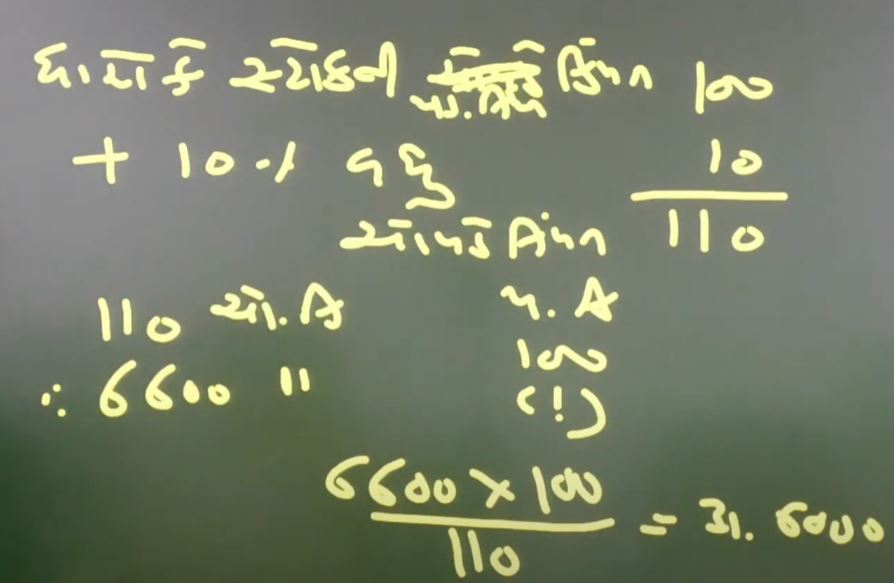 ધારો કે સ્ટોકની કિંમત 100
+ 10 ./ વધુ 10
ચોપડે કિંમત 110
110 ચો. કિં
100
∴ 6600 "
6600 × 100
110
= રૂા. 6000